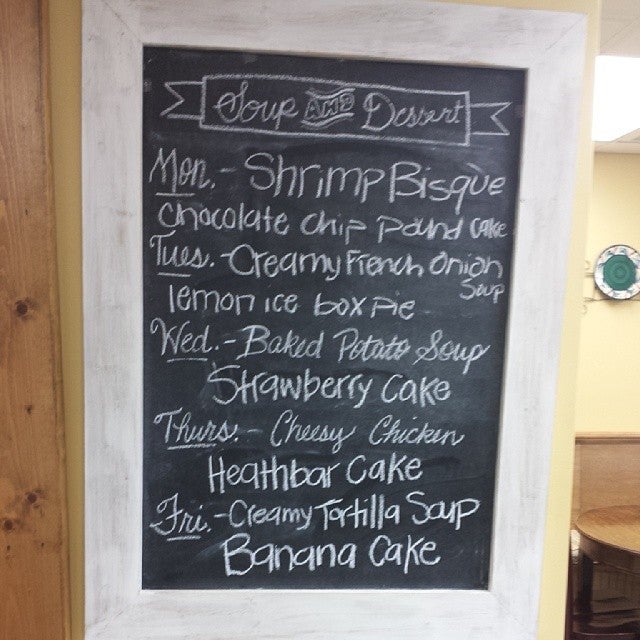 Soup AND Dessert
Mon. - Shrimp Bisque
Chocolate Chip Pound Cake
Tues. - Creamy French Onion
Soup
lemon ice box pie
Wed. - Baked Potato Soup
Strawberry Cake
Thurs. - Cheesy Chicken
Heathbar Cake
Fri. - Creamy Tortilla Soup
Banana Cake